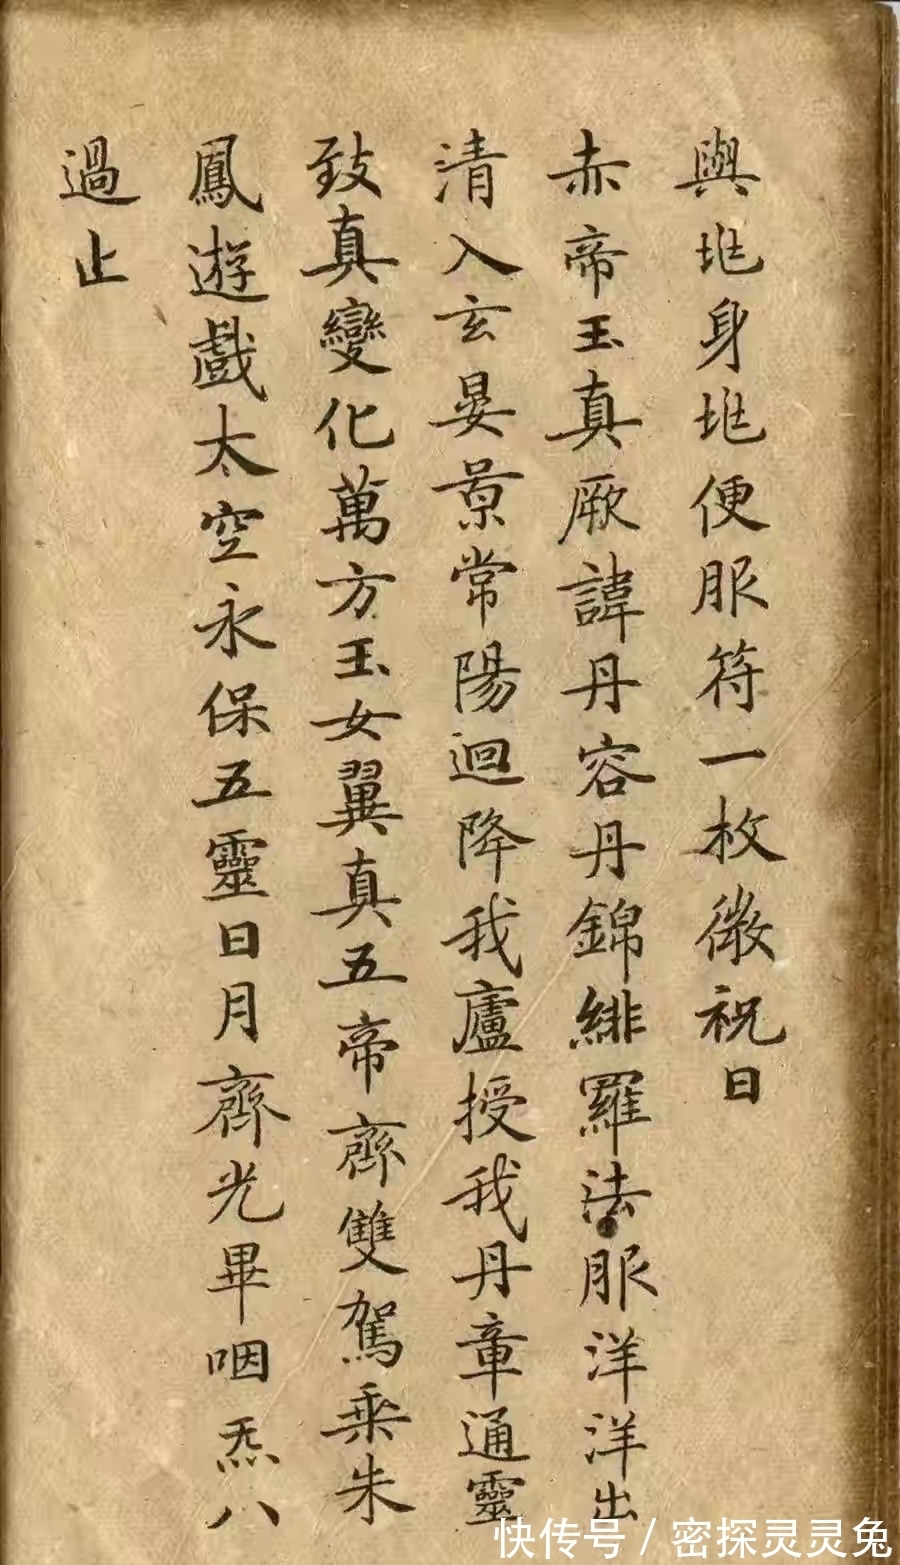 與垗身垗便服符一枚微祝曰
赤帝玉真厥諱丹容丹錦緋羅法服洋洋出
清入玄晏景常陽迴降我廬授我丹章通靈
致真變化萬方玉女翼真五帝齊雙駕乘朱
鳳遊戲太空永保五靈日月齊光畢咽炁八
過止
快传号 / 密探灵灵兔